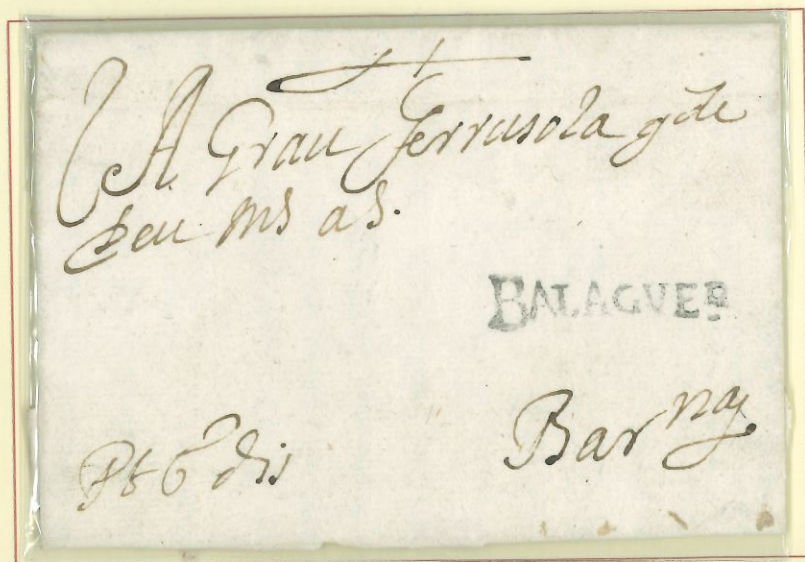 A Grau Ferrusola gde
Deu ms as.
BALAGUER
Barna